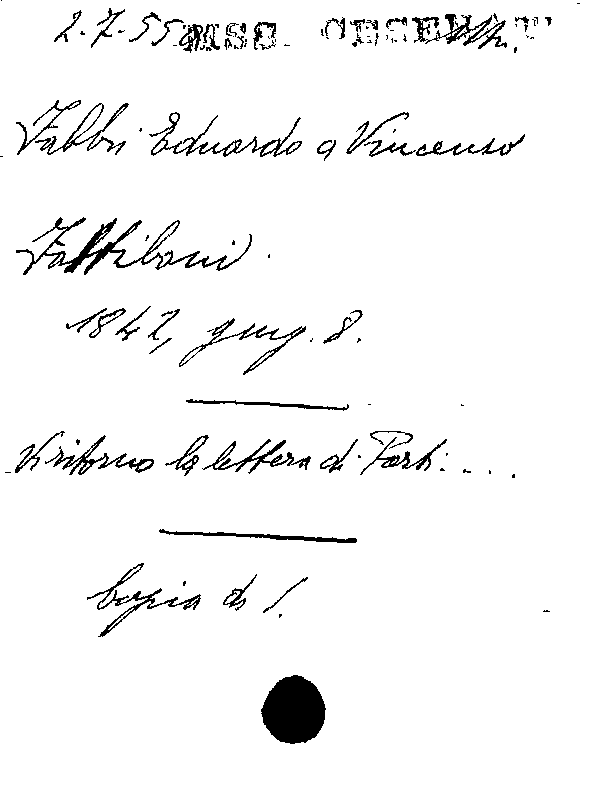 2-7-55 MSS. CESENAT
Fabbri Eduardo a Vincenzo
Fattiboni.
1842, giug. 8.
Vi ritorno la lettera di Parti....
Copia di 1.